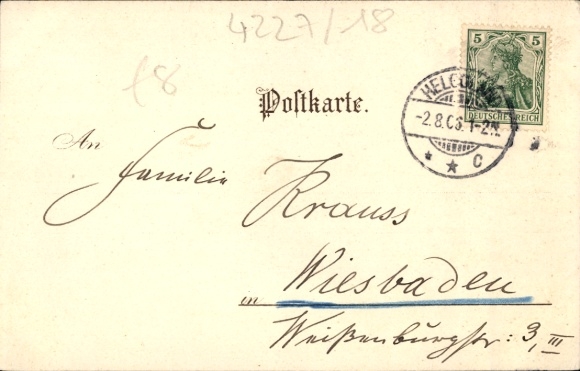 4227/18
£8
5 5
DEUTSCHES REICH
HELGOLAND
-2.8.06. 1-2N.
* * C
Postkarte.
An
Familie
Krauss
in Wiesbaden
Weißenburgstr: 3, III